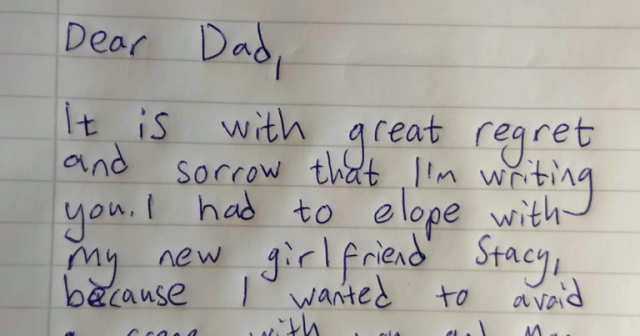 Dear Dad,
It is with great regret
and sorrow that I'm writing
you. I had to elope with
my new girlfriend Stacy,
because I wanted to avoid
a scene with